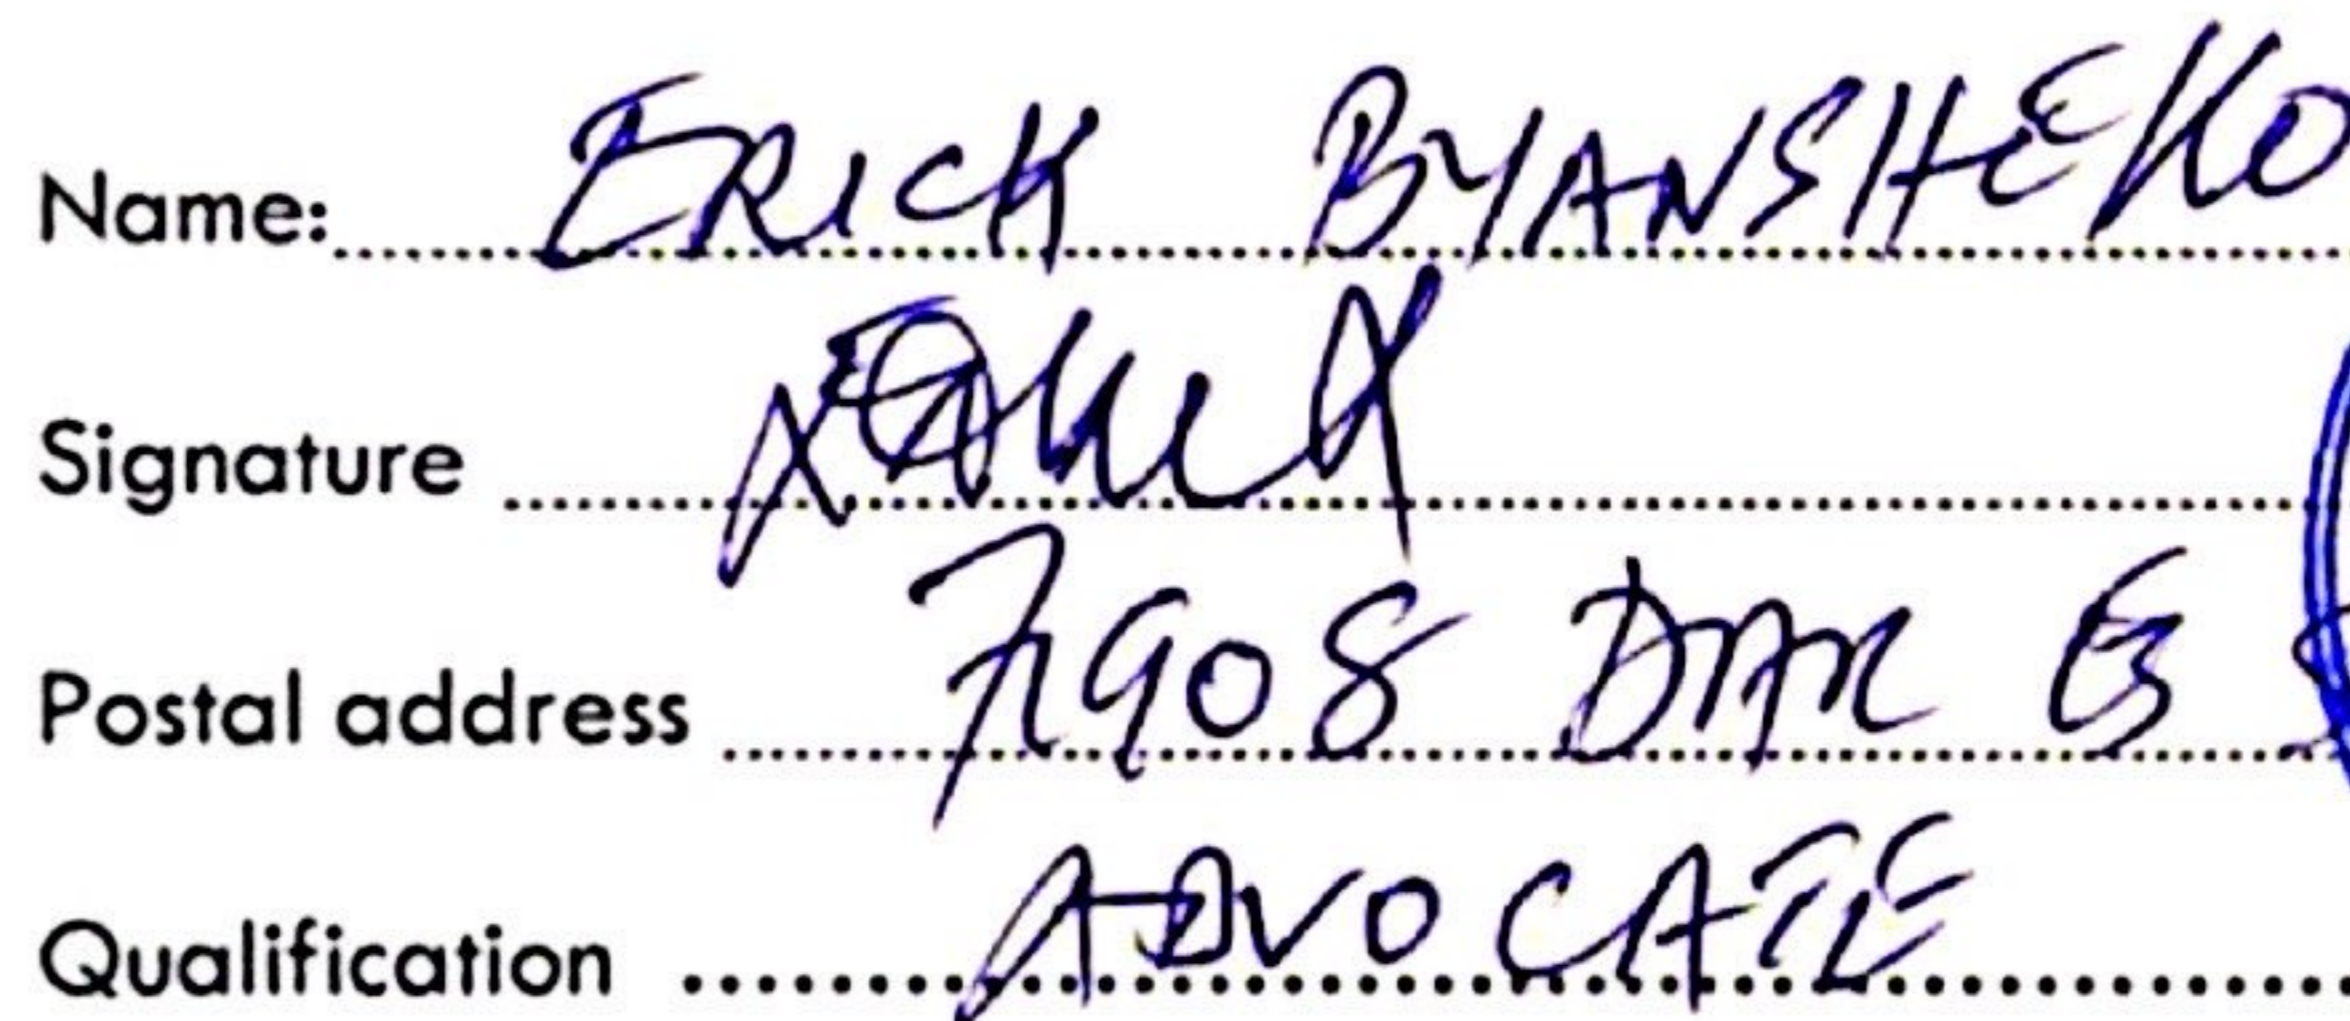 Name: ERICK BYANSHEKO
Signature
Postal address 7908 DAR ES
Qualification ADVOCATE